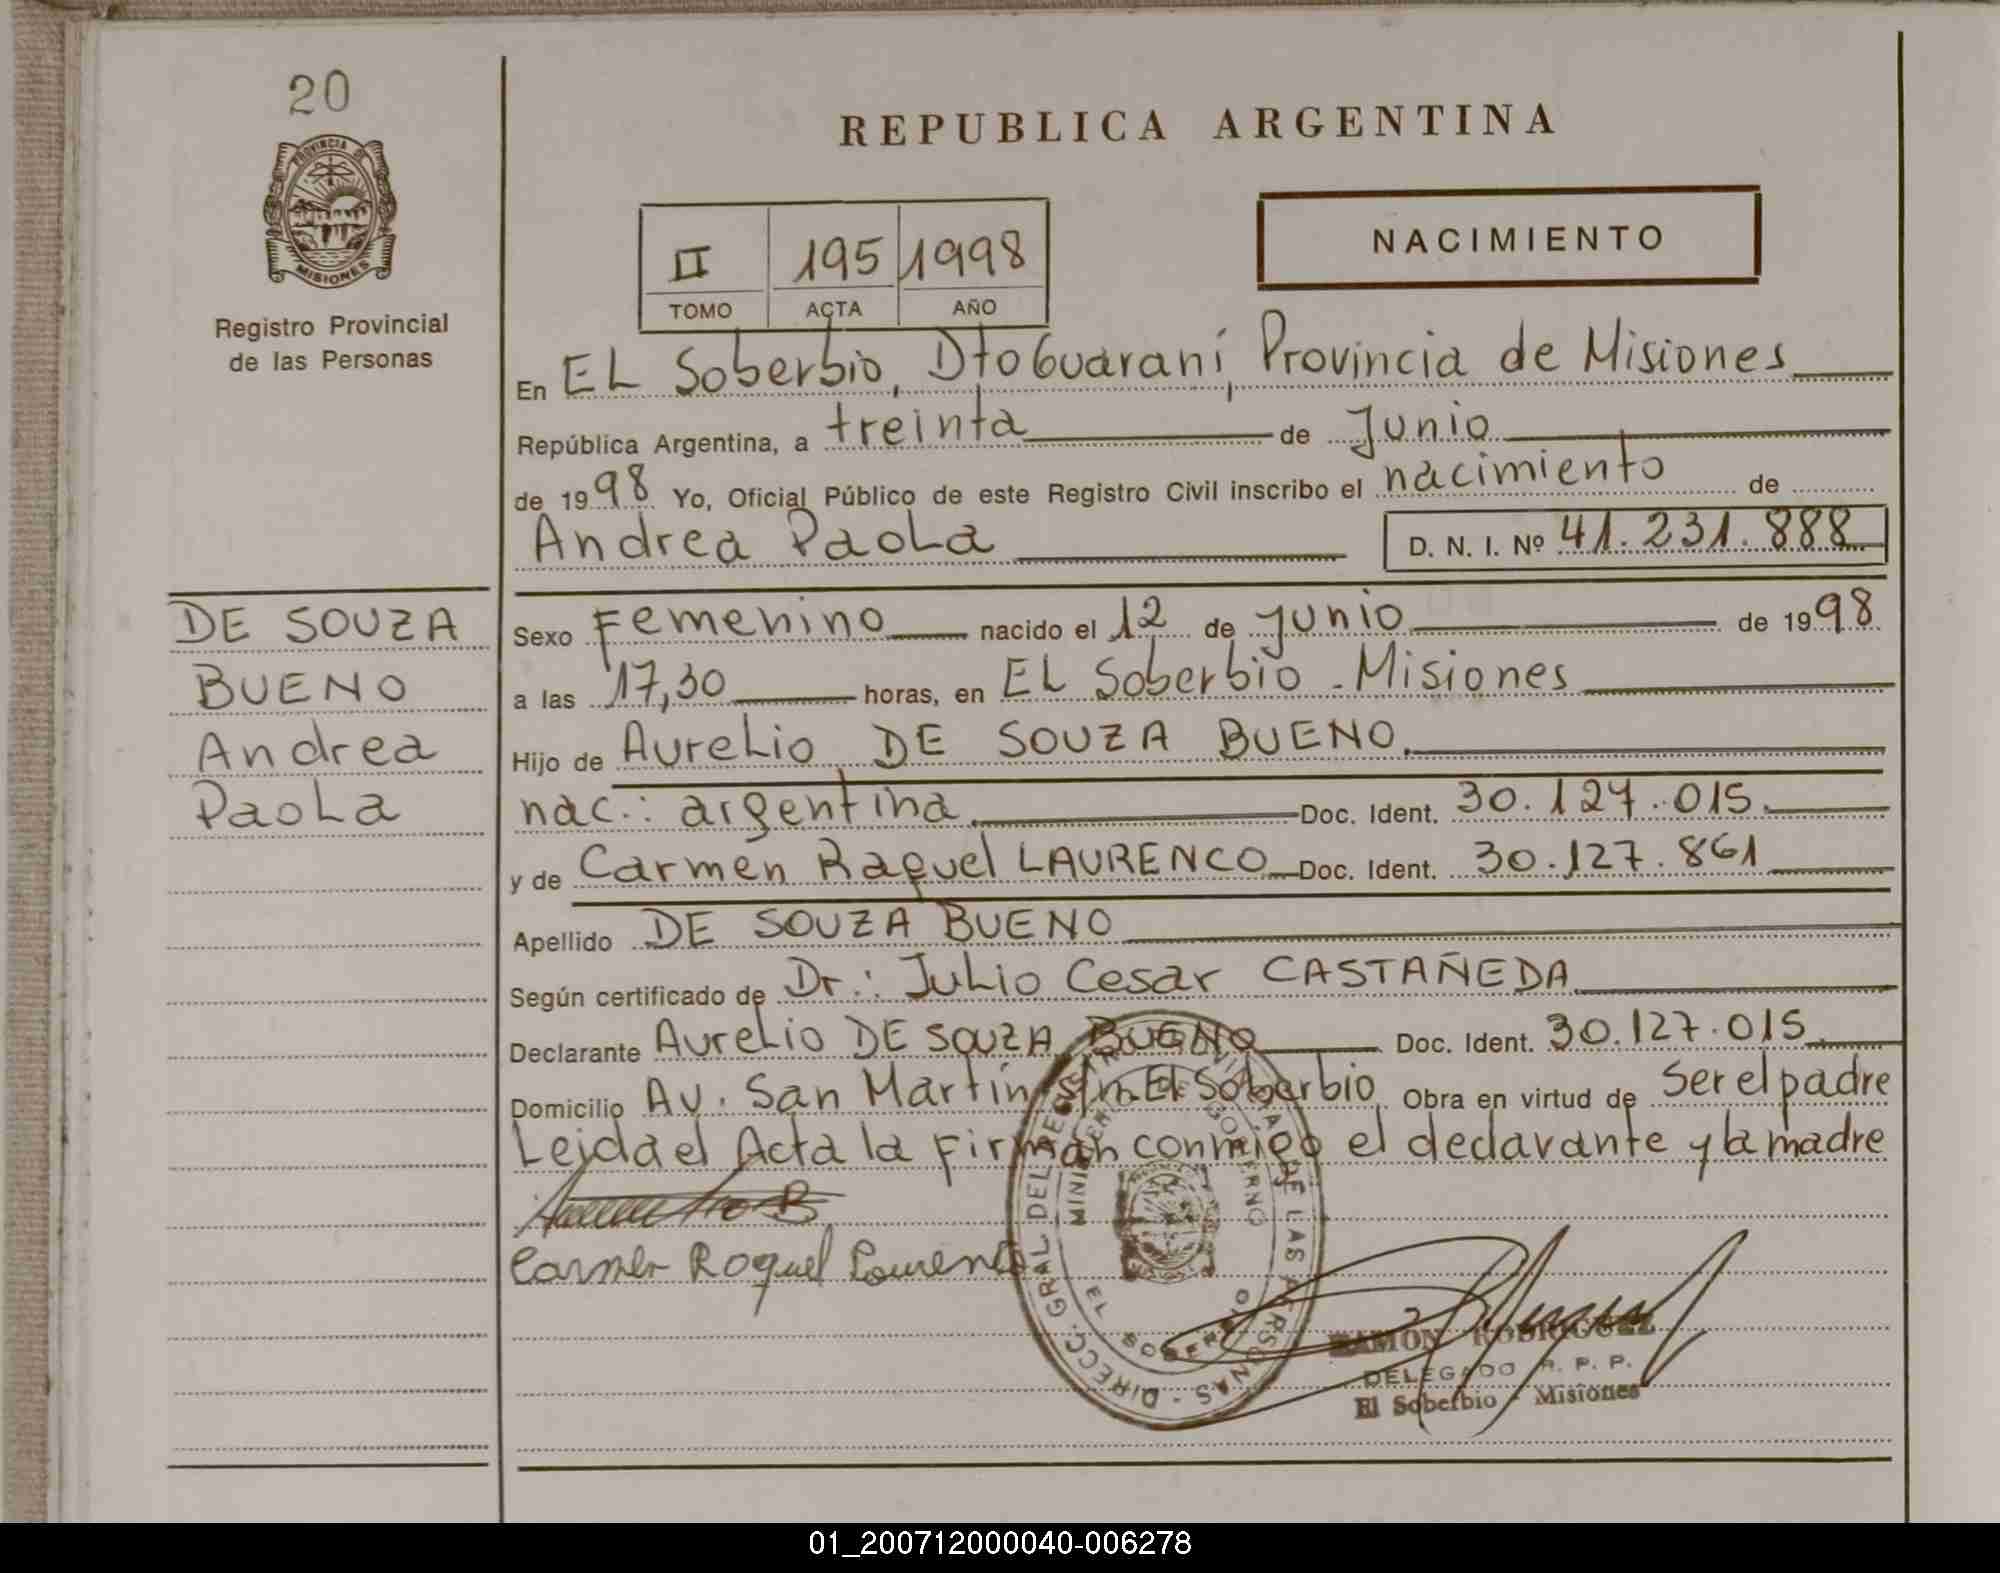 20
PROVINCIA DE
MISIONES
Registro Provincial
de las Personas
REPUBLICA ARGENTINA
II 195 1998
TOMO ACTA AÑO
NACIMIENTO
En EL Soberbio, Dto Guaraní, Provincia de Misiones
República Argentina, a treinta de Junio
de 1998 Yo, Oficial Público de este Registro Civil inscribo el nacimiento de
Andrea PaoLa D. N. I. Nº 41.231.888
DE SOUZA
BUENO
Andrea
PaoLa
Sexo Femenino nacido el 12 de junio de 1998
a las 17,30 horas, en EL Soberbio - Misiones
Hijo de AureLio DE SOUZA BUENO.
nac.: argentina Doc. Ident. 30.127.015.
y de Carmen Raquel LAURENCO Doc. Ident. 30.127.861
Apellido DE SOUZA BUENO
Según certificado de Dr.: JuLio Cesar CASTAÑEDA
Declarante AureLio DE SOUZA BUENO Doc. Ident. 30.127.015.
Domicilio Av. San Martín s/n EL Soberbio Obra en virtud de Ser el padre
Leida el Acta la Firman conmigo el declarante y la madre
Carmen Roquel Lourenco
DIRECC. GRAL DEL REGISTRO PROVINCIAL DE LAS PERSONAS -
MINISTERIO DE GOBIERNO
EL SOBERBIO
RAMON RODRIGUEZ
DELEGADO R. P. P.
El Soberbio - Misiones
01_200712000040-006278